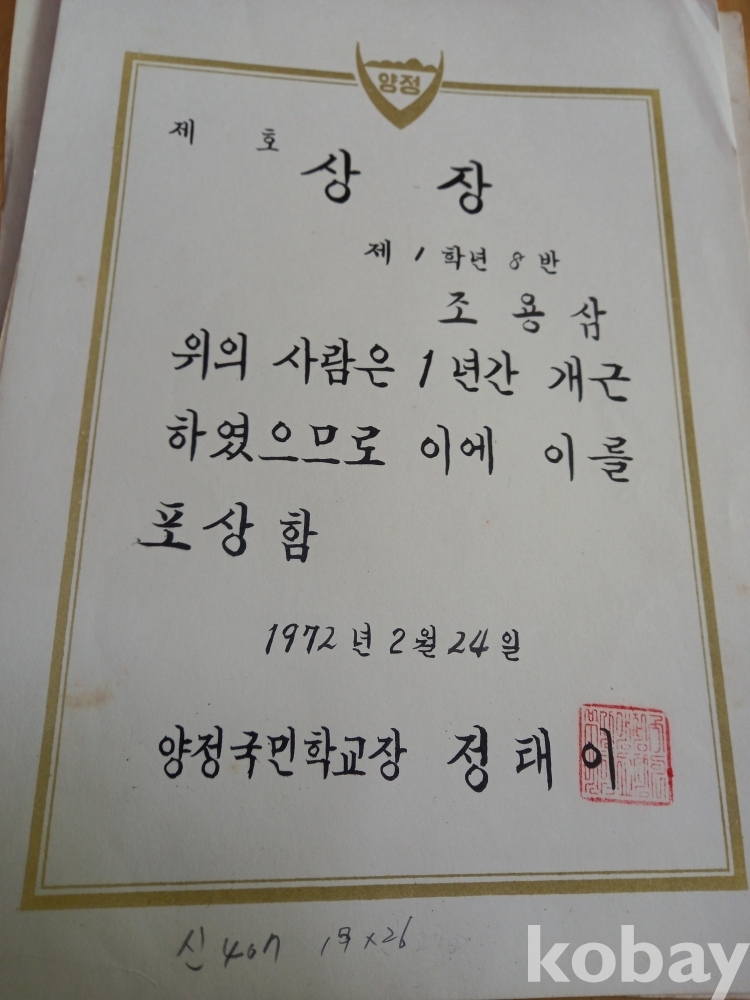 양정
제 호
상 장
제 1 학년 8 반
조 용 삼
위의 사람은 1년간 개근
하였으므로 이에 이를
포상함
1972년 2월 24일
양정국민학교장 정태이
신 407 19 x 26
kobay